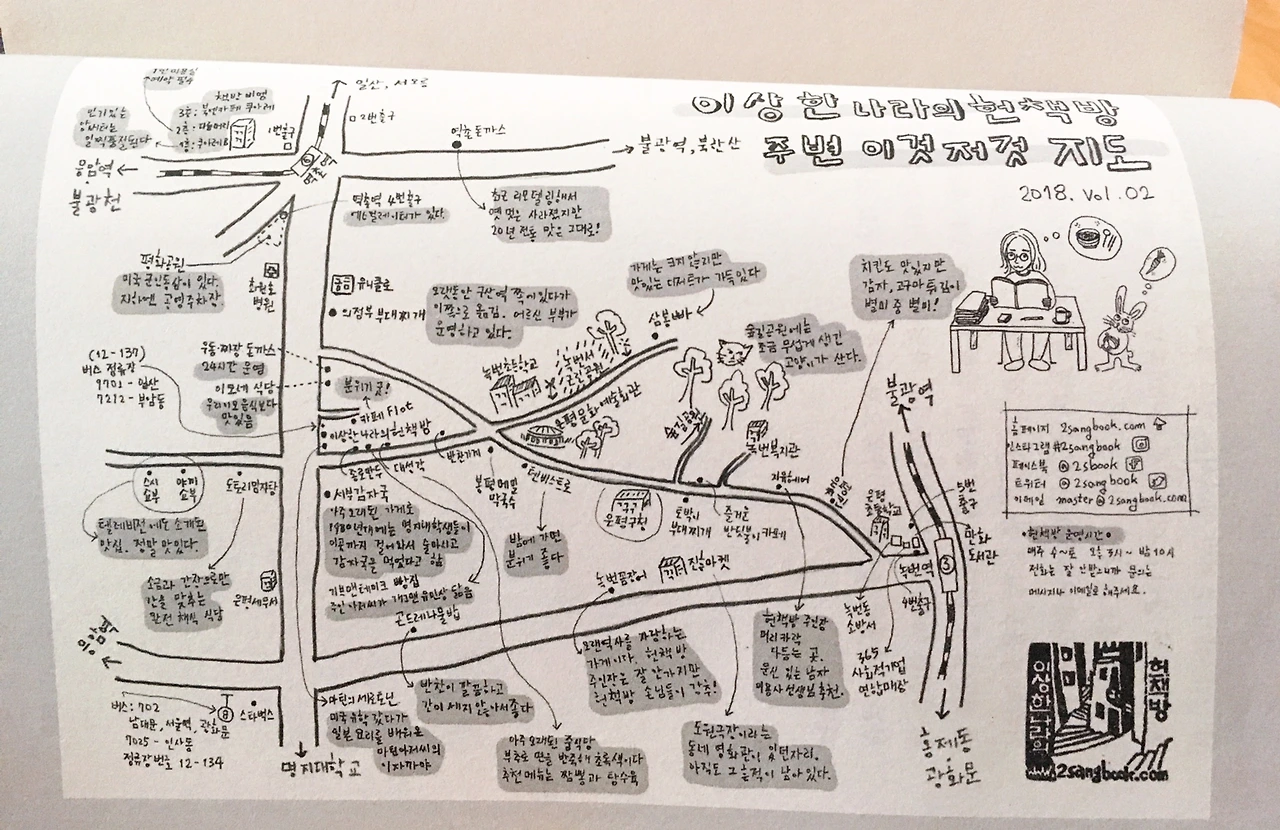 이상한나라의헌책방
주변 이것저것 지도
2018. Vol. 02
1인 미용실
예약 필수
책방 비엥
3층: 북앤카페 쿠아레
인기있는
일산, 서오릉
2번출구
1번출구
6
역촌 돈까스
불광역, 북한산
응암역
불광천
역촌역 4번출구
에스컬레이터가 있다.
최근 리모델링해서
옛 멋은 사라졌지만
20년 전통 맛은 그대로!
평화공원
미국 군인동상이 있다.
지하엔 공영주차장.
병원
유니클로
의정부 부대찌개
오랫동안 구산역 쪽에 있다가
이쪽으로 옮김. 어르신 부부가
운영하고 있다.
가게는 크지 않지만
맛있는 디저트가 가득있다
삼봉빠
치킨도 맛있지만
감자, 고구마 튀김이
별미 중 별미!
숲길공원에는
조금 무섭게 생긴
고양이가 산다.
(12-137)
버스 정류장
9701 - 일산
7212 - 부암동
우동·짜장 돈까스
24시간 운영
이모네 식당
우리이모음식보다
맛있음
분위기 굿!
카페 Flat
이상한나라의헌책방
녹번초등학교
녹번서
근린공원
은평문화예술회관
숲길공원
녹번복지관
불광역
스시
쇼부
야끼
쇼부
도토리임자탕
종로만두
대성각
반찬가게
봉평메밀
막국수
텐비스트로
은평구청
토박이
부대찌개
즐거운
반딧불이카페
지유헤어
은평
초등학교
5번
출구
만화
도서관
3
녹번역
4번출구
텔레비전에도 소개된
맛집. 정말 맛있다.
서부감자국
아주 오래된 가게로
1980년대에는 명지대학생들이
이곳까지 걸어와서 술마시고
감자국을 먹었다고 함
밤에 가면
분위기 좋다
소금과 간장으로만
간을 맞추는
완전 채식 식당
은평세무서
기브앤테이크 빵집
주인 아저씨가 개그맨 유민상 닮음
곤드레나물밥
녹번곰장어
진흥마켓
녹번동
소방서
365
사회적기업
연합매장
홈페이지 2sangbook.com
인스타그램 #2sangbook
페이스북 @2sbook
트위터 @2sangbook
이메일 master@2sangbook.com
·헌책방 운영시간·
매주 수~토 오후 3시~ 밤 10시
전화는 잘 안받으니까 문의는
메시지나 이메일로 해주세요.
버스: 702
남대문, 서울역, 광화문
7025 - 인사동
정류장번호 12-134
스타벅스
명지대학교
마틴의 세르보닌
미국 유학 갔다가
일본 요리를 배워온
마틴아저씨의
이자까야
반찬이 깔끔하고
간이 세지 않아서 좋다
아주 오래된 중식당
부추로 면을 반죽해 초록색이다
추천 메뉴는 짬뽕과 탕수육
오랜역사를 자랑하는
가게이다. 헌책방
주인장은 잘 안가지만
헌책방 손님들이 강추!
도원극장이라는
동네 영화관이 있던자리.
아직도 그 흔적이 남아있다.
헌책방 주인장
머리카락
다듬는 곳.
이용사선생님 추천.
홍제동
광화문
이상한나라의
헌책방
2sangbook.com